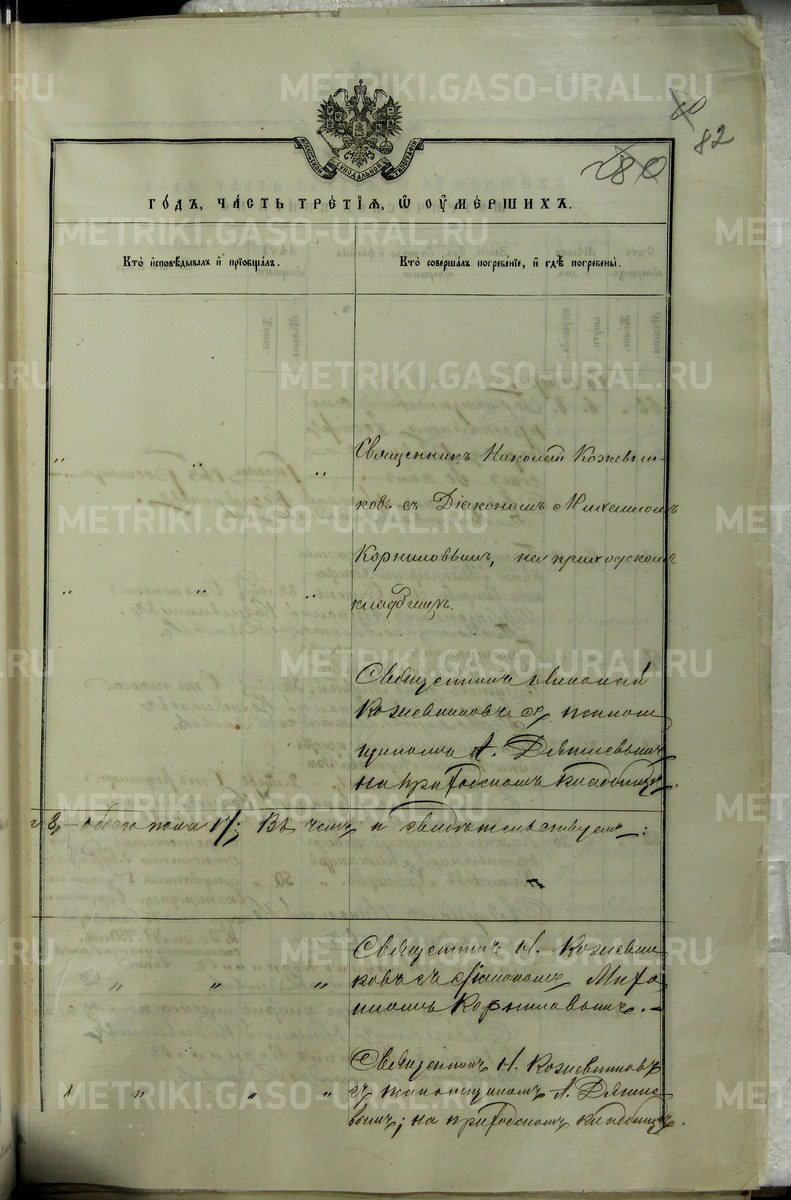 METRIKI.GASO-URAL.RU
60
82
280
МОСКОВСКОЙ СѴНОДАЛЬНОЙ ТИПОГРАФІИ
ГОДЪ, ЧАСТЬ ТРЕТІЯ, Ѡ ОУМЕРШИХЪ.
Кто исповѣдывалъ и пріобщалъ.
Кто совершалъ погребеніе, и гдѣ погребены.
Священникъ Николай Кожевни-
ковъ съ Діакономъ Михаиломъ
Корниловымъ, на приходскомъ
кладбищѣ.
Священникъ Николай
Кожевниковъ съ псалом
щикомъ А.
на приходскомъ кладбищѣ.
обоего пола 17; Въ чемъ и свидѣтельствуемъ:
Священникъ Н. Кожевни
ковъ съ Діакономъ Миха
иломъ Корниловымъ. -
Священникъ Н. Кожевниковъ
съ псаломщикомъ А.
на приходскомъ кладбищѣ.